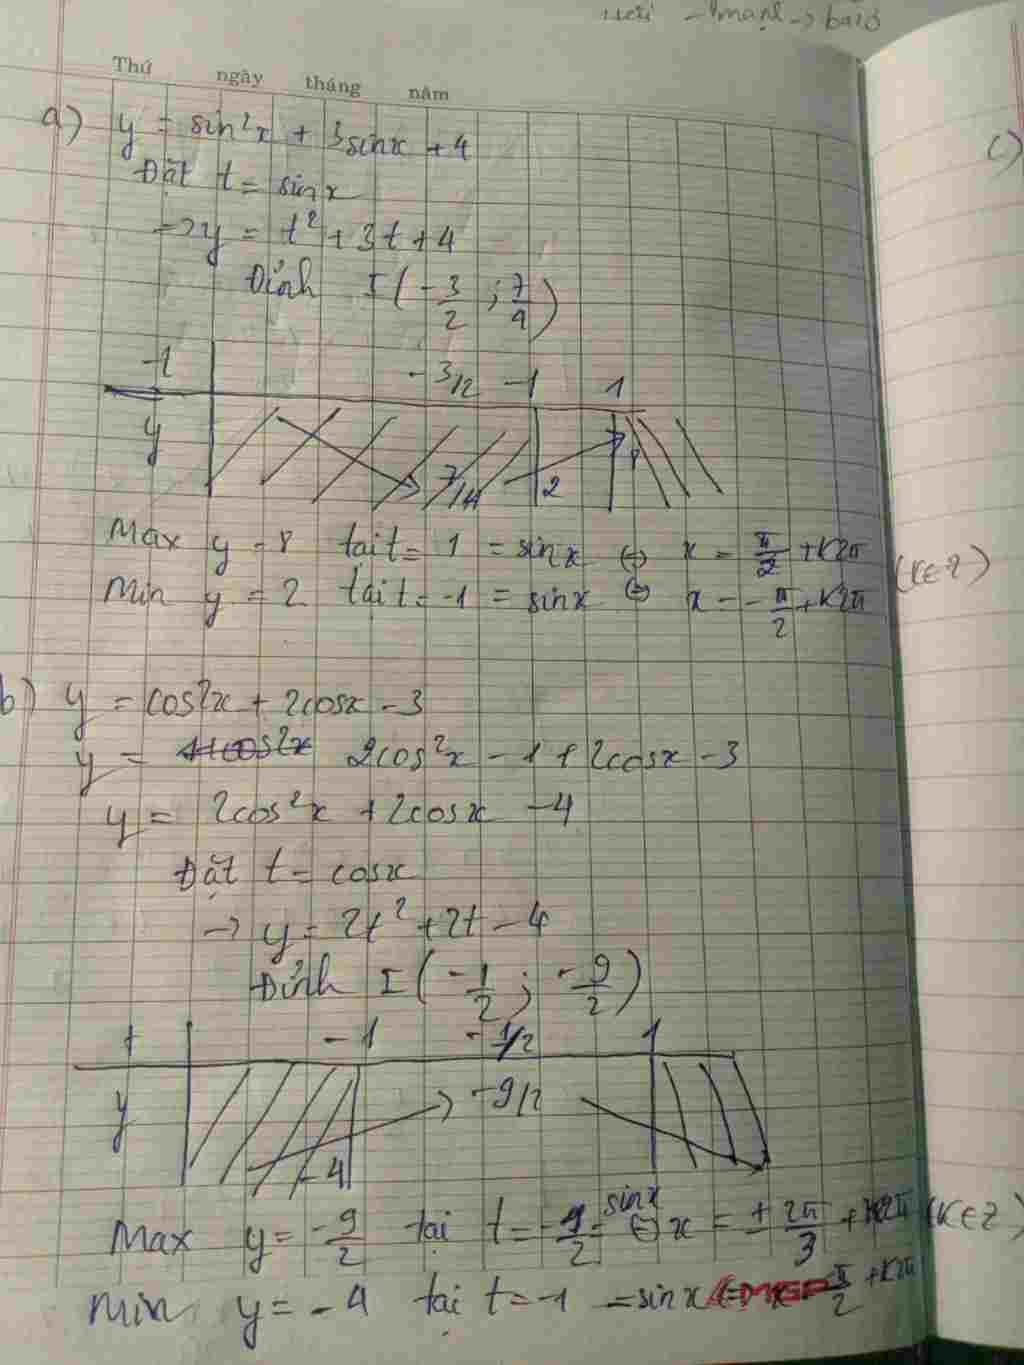 Thứ ngày tháng năm
a) y = sin²x + 3sinx + 4
Đặt t = sinx
→ y = t² + 3t + 4
Đỉnh I(-3/2 ; 7/4)
-1 -3/2 -1 1
y 7/4 2 8
Max y = 8 tại t = 1 = sinx ⇔ x = π/2 + k2π
Min y = 2 tại t = -1 = sinx ⇔ x = -π/2 + k2π (k∈Z)
b) y = cos2x + 2cosx - 3
y = 2cos²x - 1 + 2cosx - 3
y = 2cos²x + 2cosx - 4
Đặt t = cosx
→ y = 2t² + 2t - 4
Đỉnh I(-1/2 ; -9/2)
t -1 -1/2 1
y -4 -9/2
Max y = -9/2 tại t = -9/2 = sinx ⇔ x = ± 2π/3 + k2π (k∈Z)
Min y = -4 tại t = -1 = sinx π/2 + k2π
c)